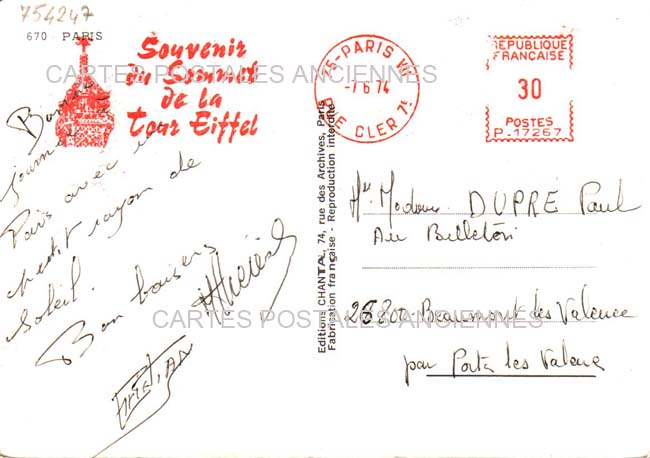 754247
670 PARIS
Souvenir
du Sommet
de la
Tour Eiffel
75-PARIS VII
-7 6 74
RUE CLER 7e
REPUBLIQUE
FRANCAISE
30
POSTES
P-17267
CARTES POSTALES ANCIENNES
Bonne
journée à
Paris avec un
petit rayon de
soleil.
Bon baisers
Christian
Editions CHANTAL, 74, rue des Archives, Paris
Fabrication française - Reproduction interdite
Mr Madame DUPRÉ Paul
Au Billeton
26800 Beaumont les Valence
par Portes les Valence
CARTES POSTALES ANCIENNES